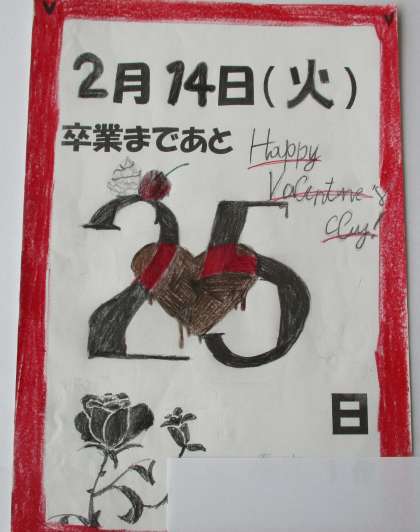 2月14日(火)
卒業まであと
Happy
Valentine's
day!
25
日